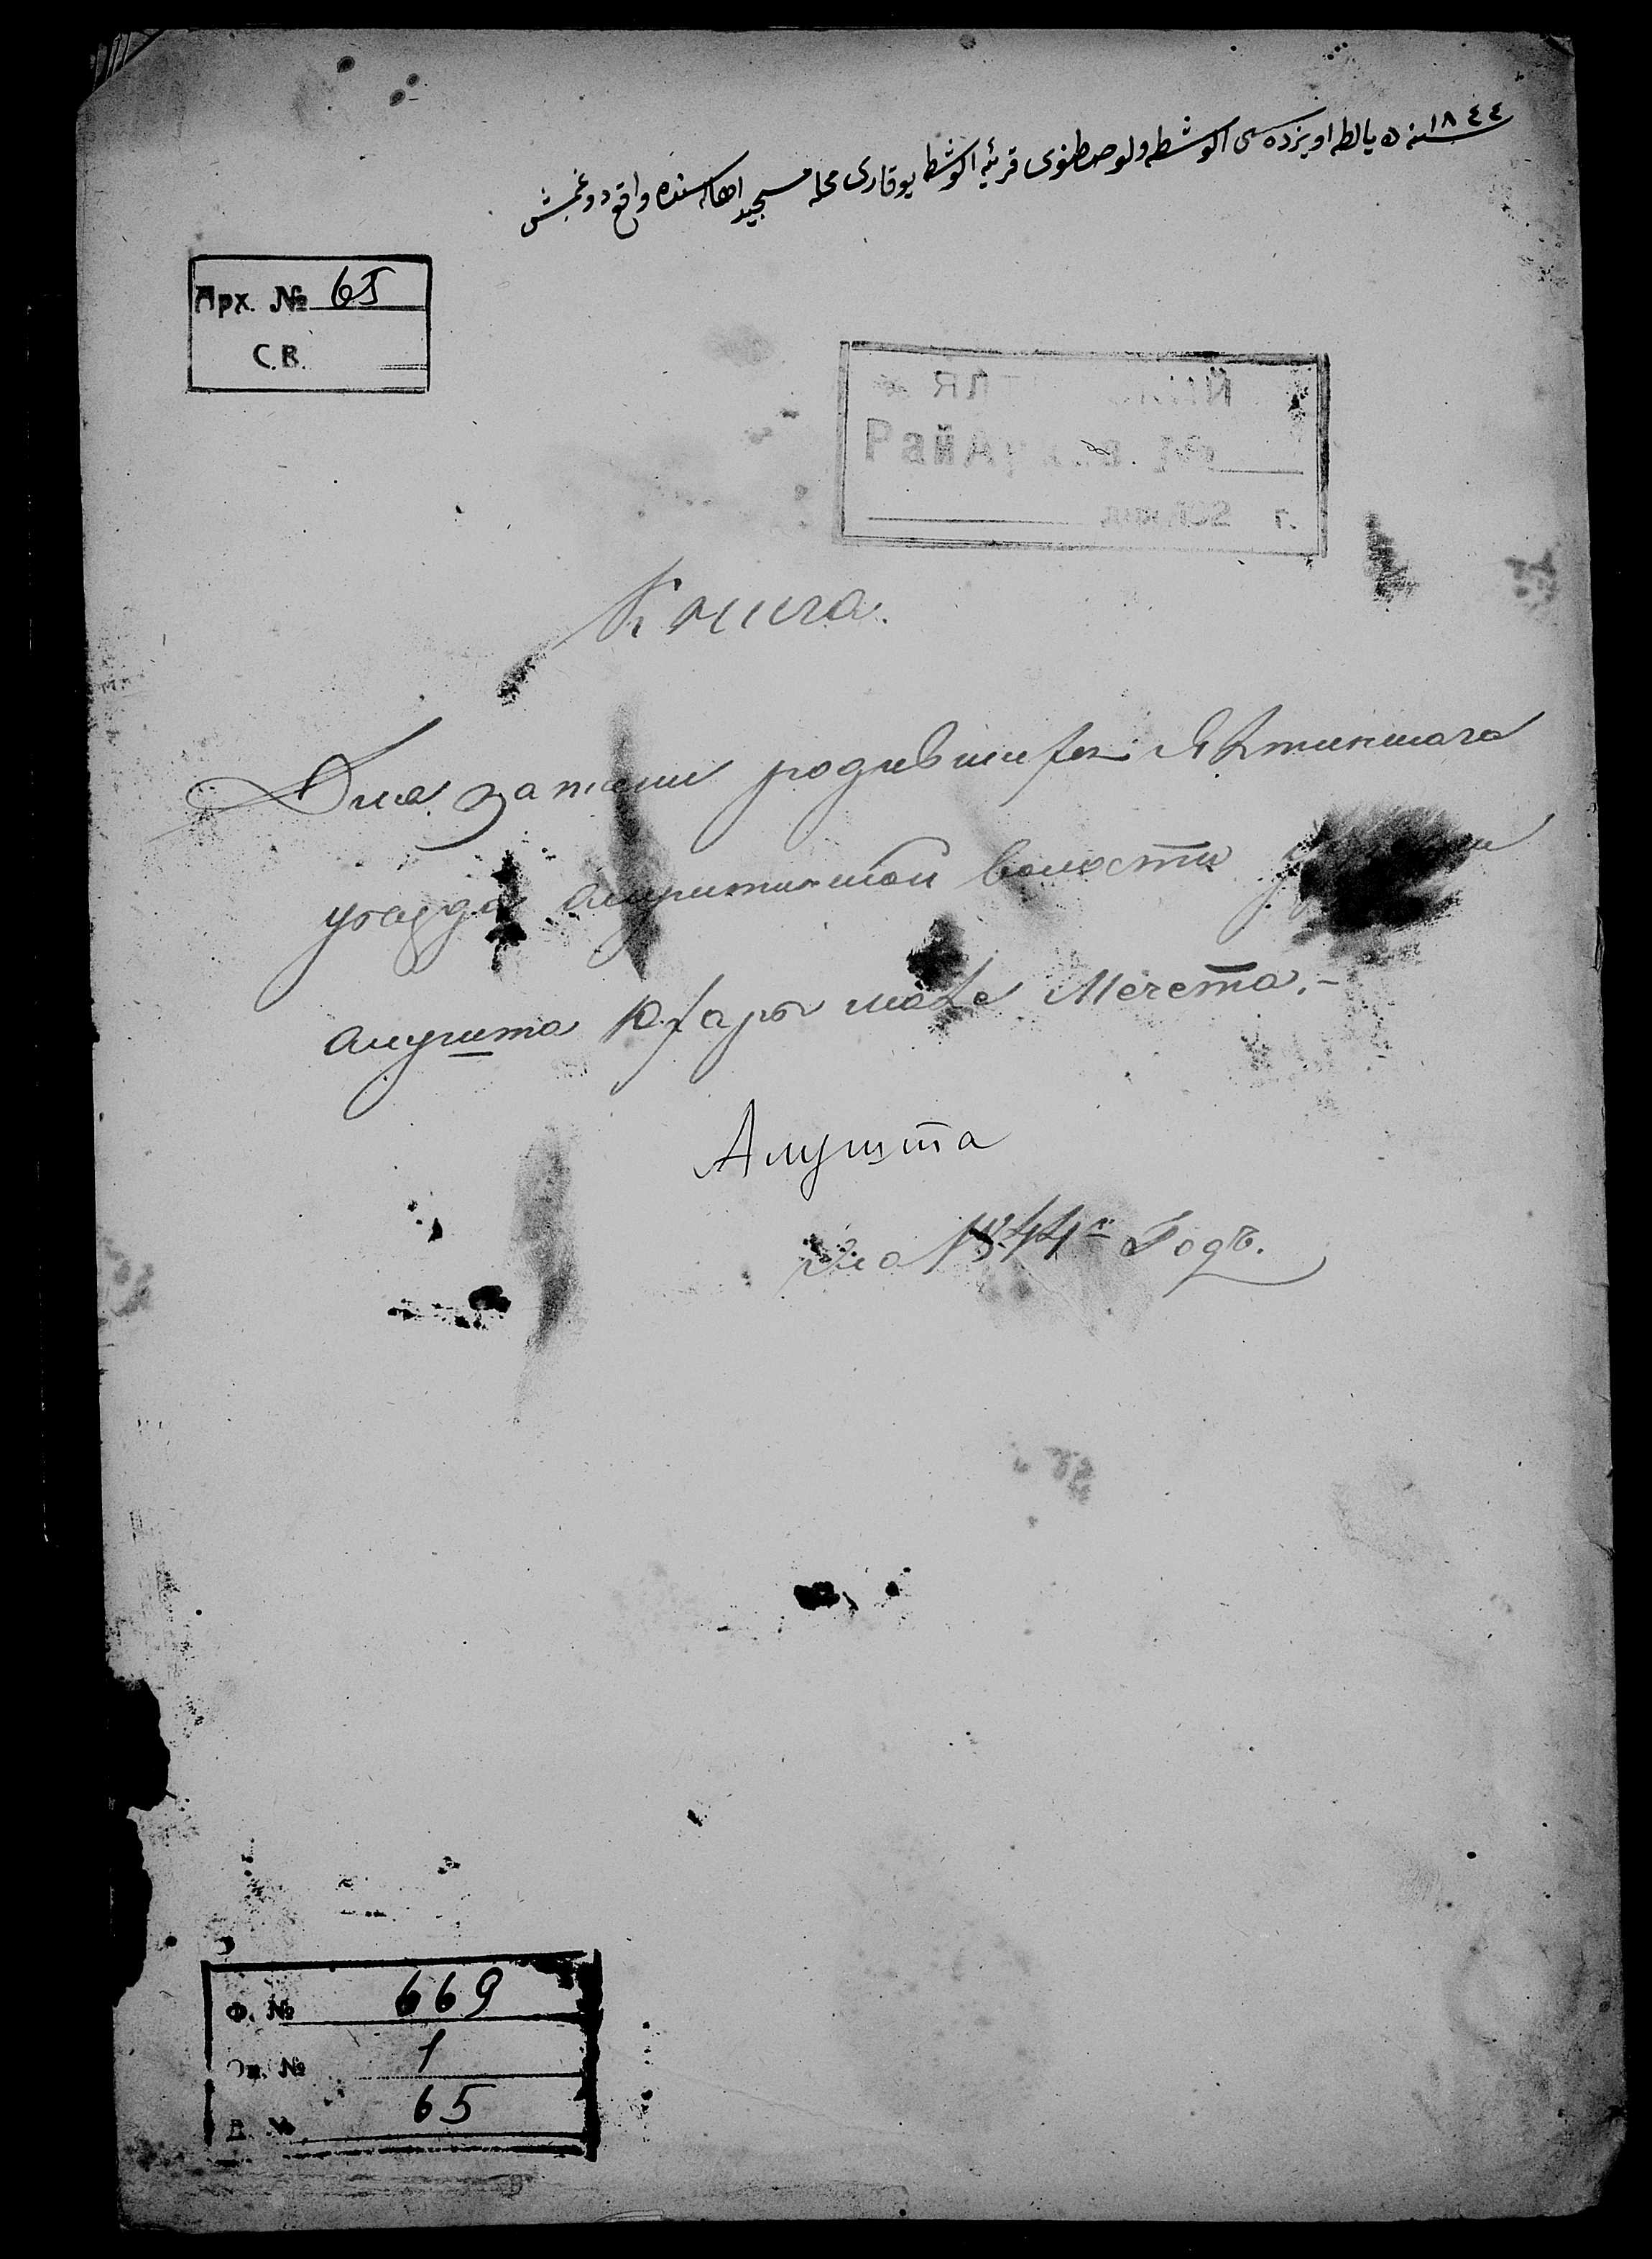 ١٨٤٤ سنه ده يالطه اويزده سى الوشطه ولوصطنوى قريۀ الوشطه يوقارى محله مسجد اهاليسنده واقع دوغمش
Арх. № 65
С.В.
РайАрхив. №
г.
Книга.
Для записи родившихся Ялтинскаго
уезда Алуштинской волости
Алушта Юхары мале Мечета.-
Алушта
На 1844г Годъ.
Ф. № 669
Оп. № 1
Д. № 65